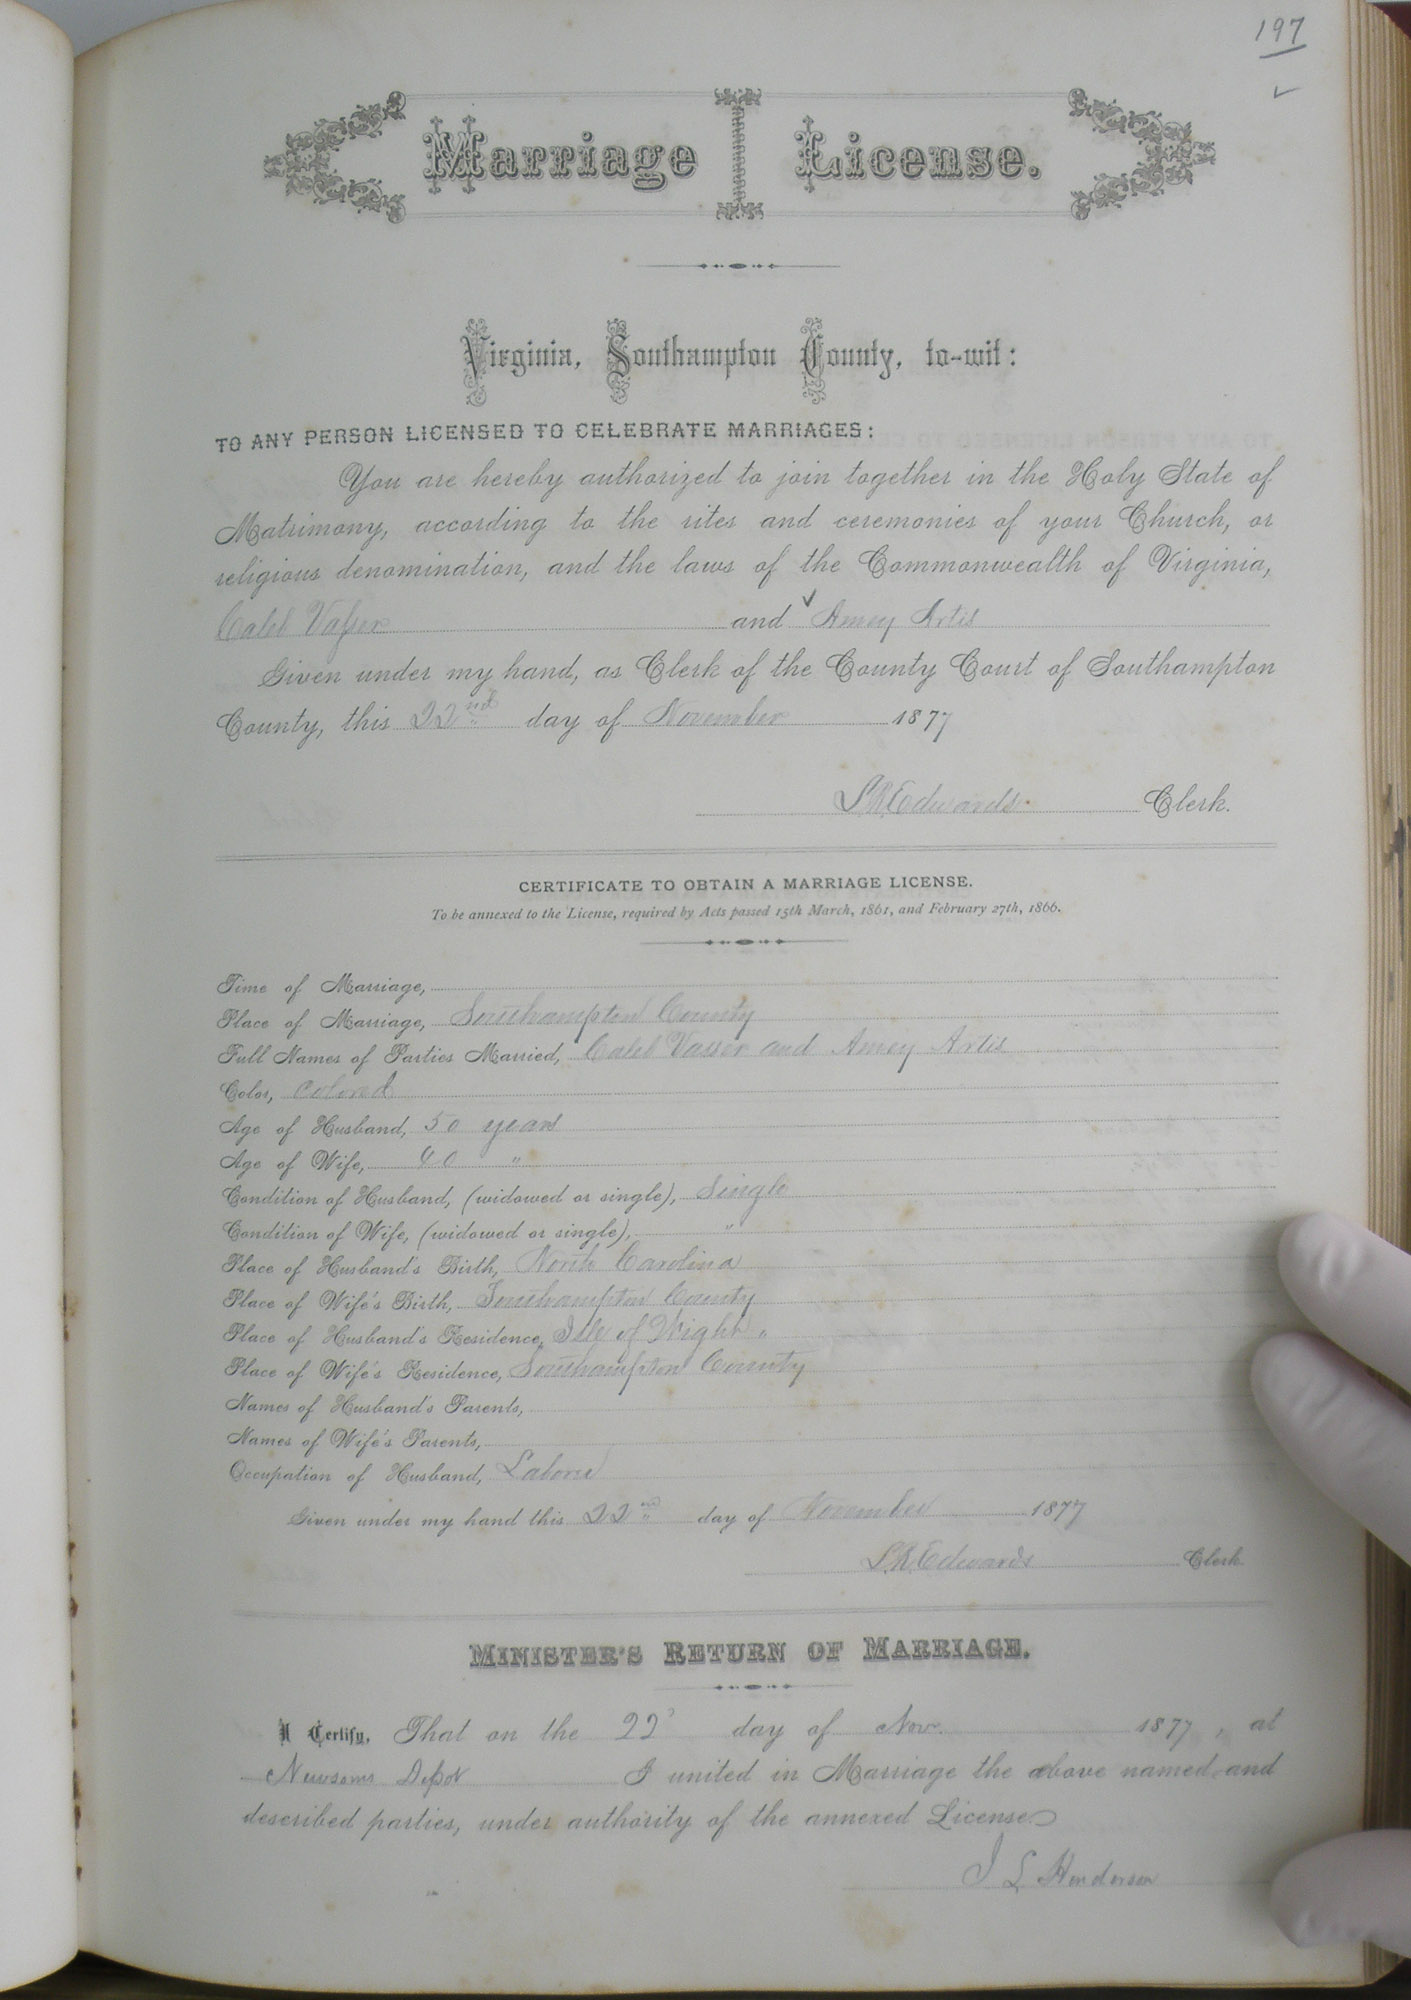 197
Marriage License.
Virginia, Southampton County, to-wit:
TO ANY PERSON LICENSED TO CELEBRATE MARRIAGES:
You are hereby authorized to join together in the Holy State of
Matrimony, according to the rites and ceremonies of your Church, or
religious denomination, and the laws of the Commonwealth of Virginia,
Caleb Vasser and Amey Artis
Given under my hand, as Clerk of the County Court of Southampton
County, this 22nd day of November 1877
L.R. Edwards Clerk.
CERTIFICATE TO OBTAIN A MARRIAGE LICENSE.
To be annexed to the License, required by Acts passed 15th March, 1861, and February 27th, 1866.
Time of Marriage,
Place of Marriage, Southampton County
Full Names of Parties Married, Caleb Vasser and Amey Artis
Color, colored
Age of Husband, 50 years
Age of Wife, 40 "
Condition of Husband, (widowed or single), Single
Condition of Wife, (widowed or single), "
Place of Husband's Birth, North Carolina
Place of Wife's Birth, Southampton County
Place of Husband's Residence, Isle of Wight "
Place of Wife's Residence, Southampton County
Names of Husband's Parents,
Names of Wife's Parents,
Occupation of Husband, Laborer
Given under my hand this 22nd day of November 1877
L.R. Edwards Clerk
MINISTER'S RETURN OF MARRIAGE.
I Certify, That on the 22 day of Nov. 1877, at
Newsoms Depot I united in Marriage the above named and
described parties, under authority of the annexed License
J L Henderson